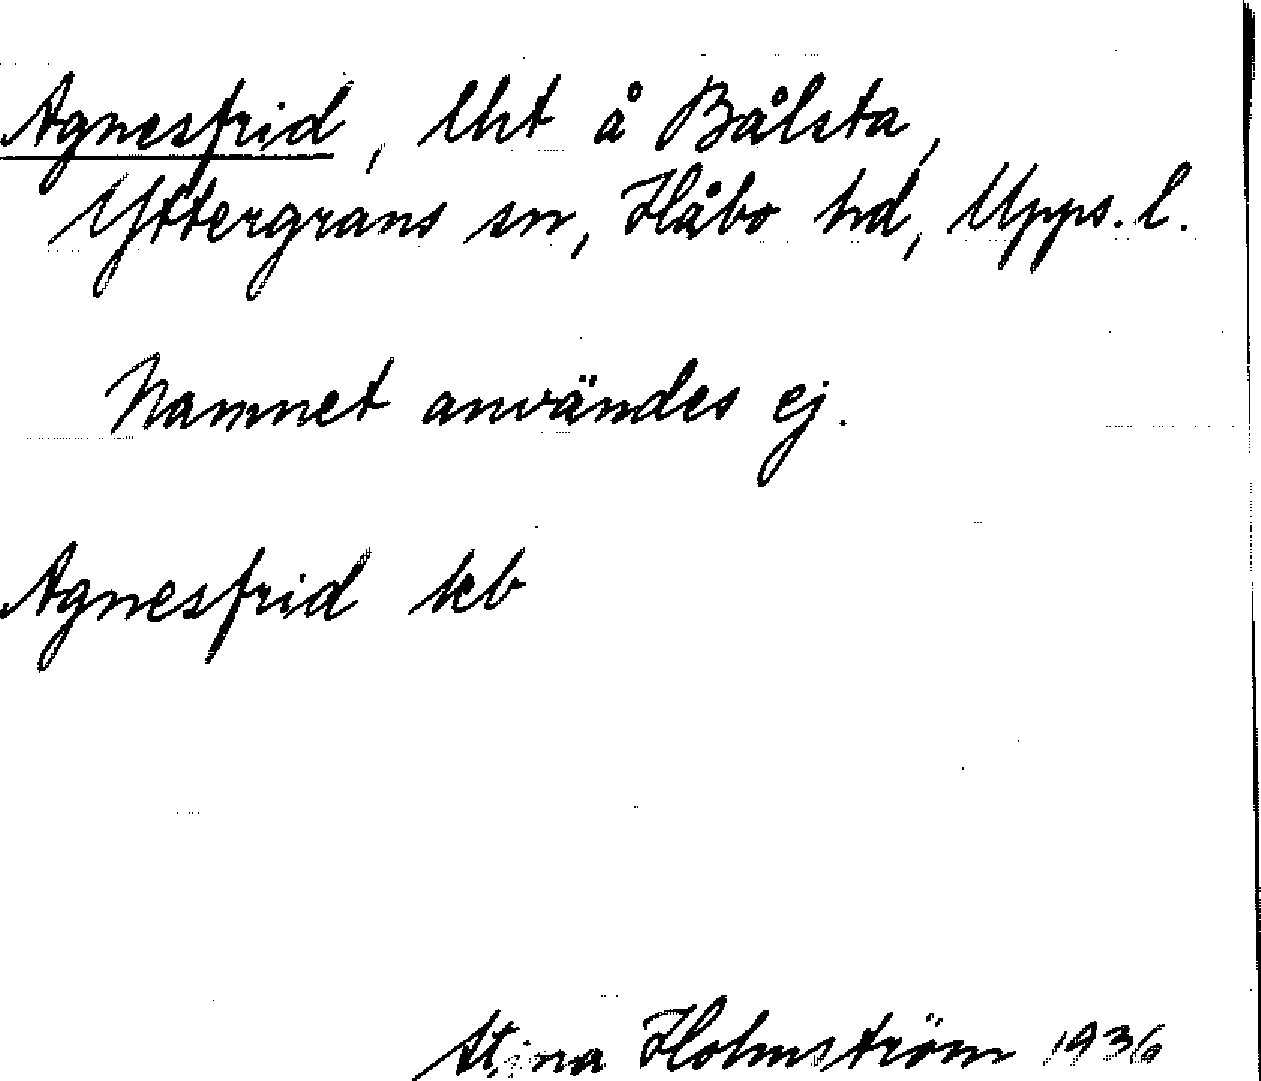 Agnesfrid, lht å Bålsta,
Yttergrans sn, Håbo hd, Upps. l.
Namnet användes ej.
Agnesfrid kb
Stina Holmström 1936